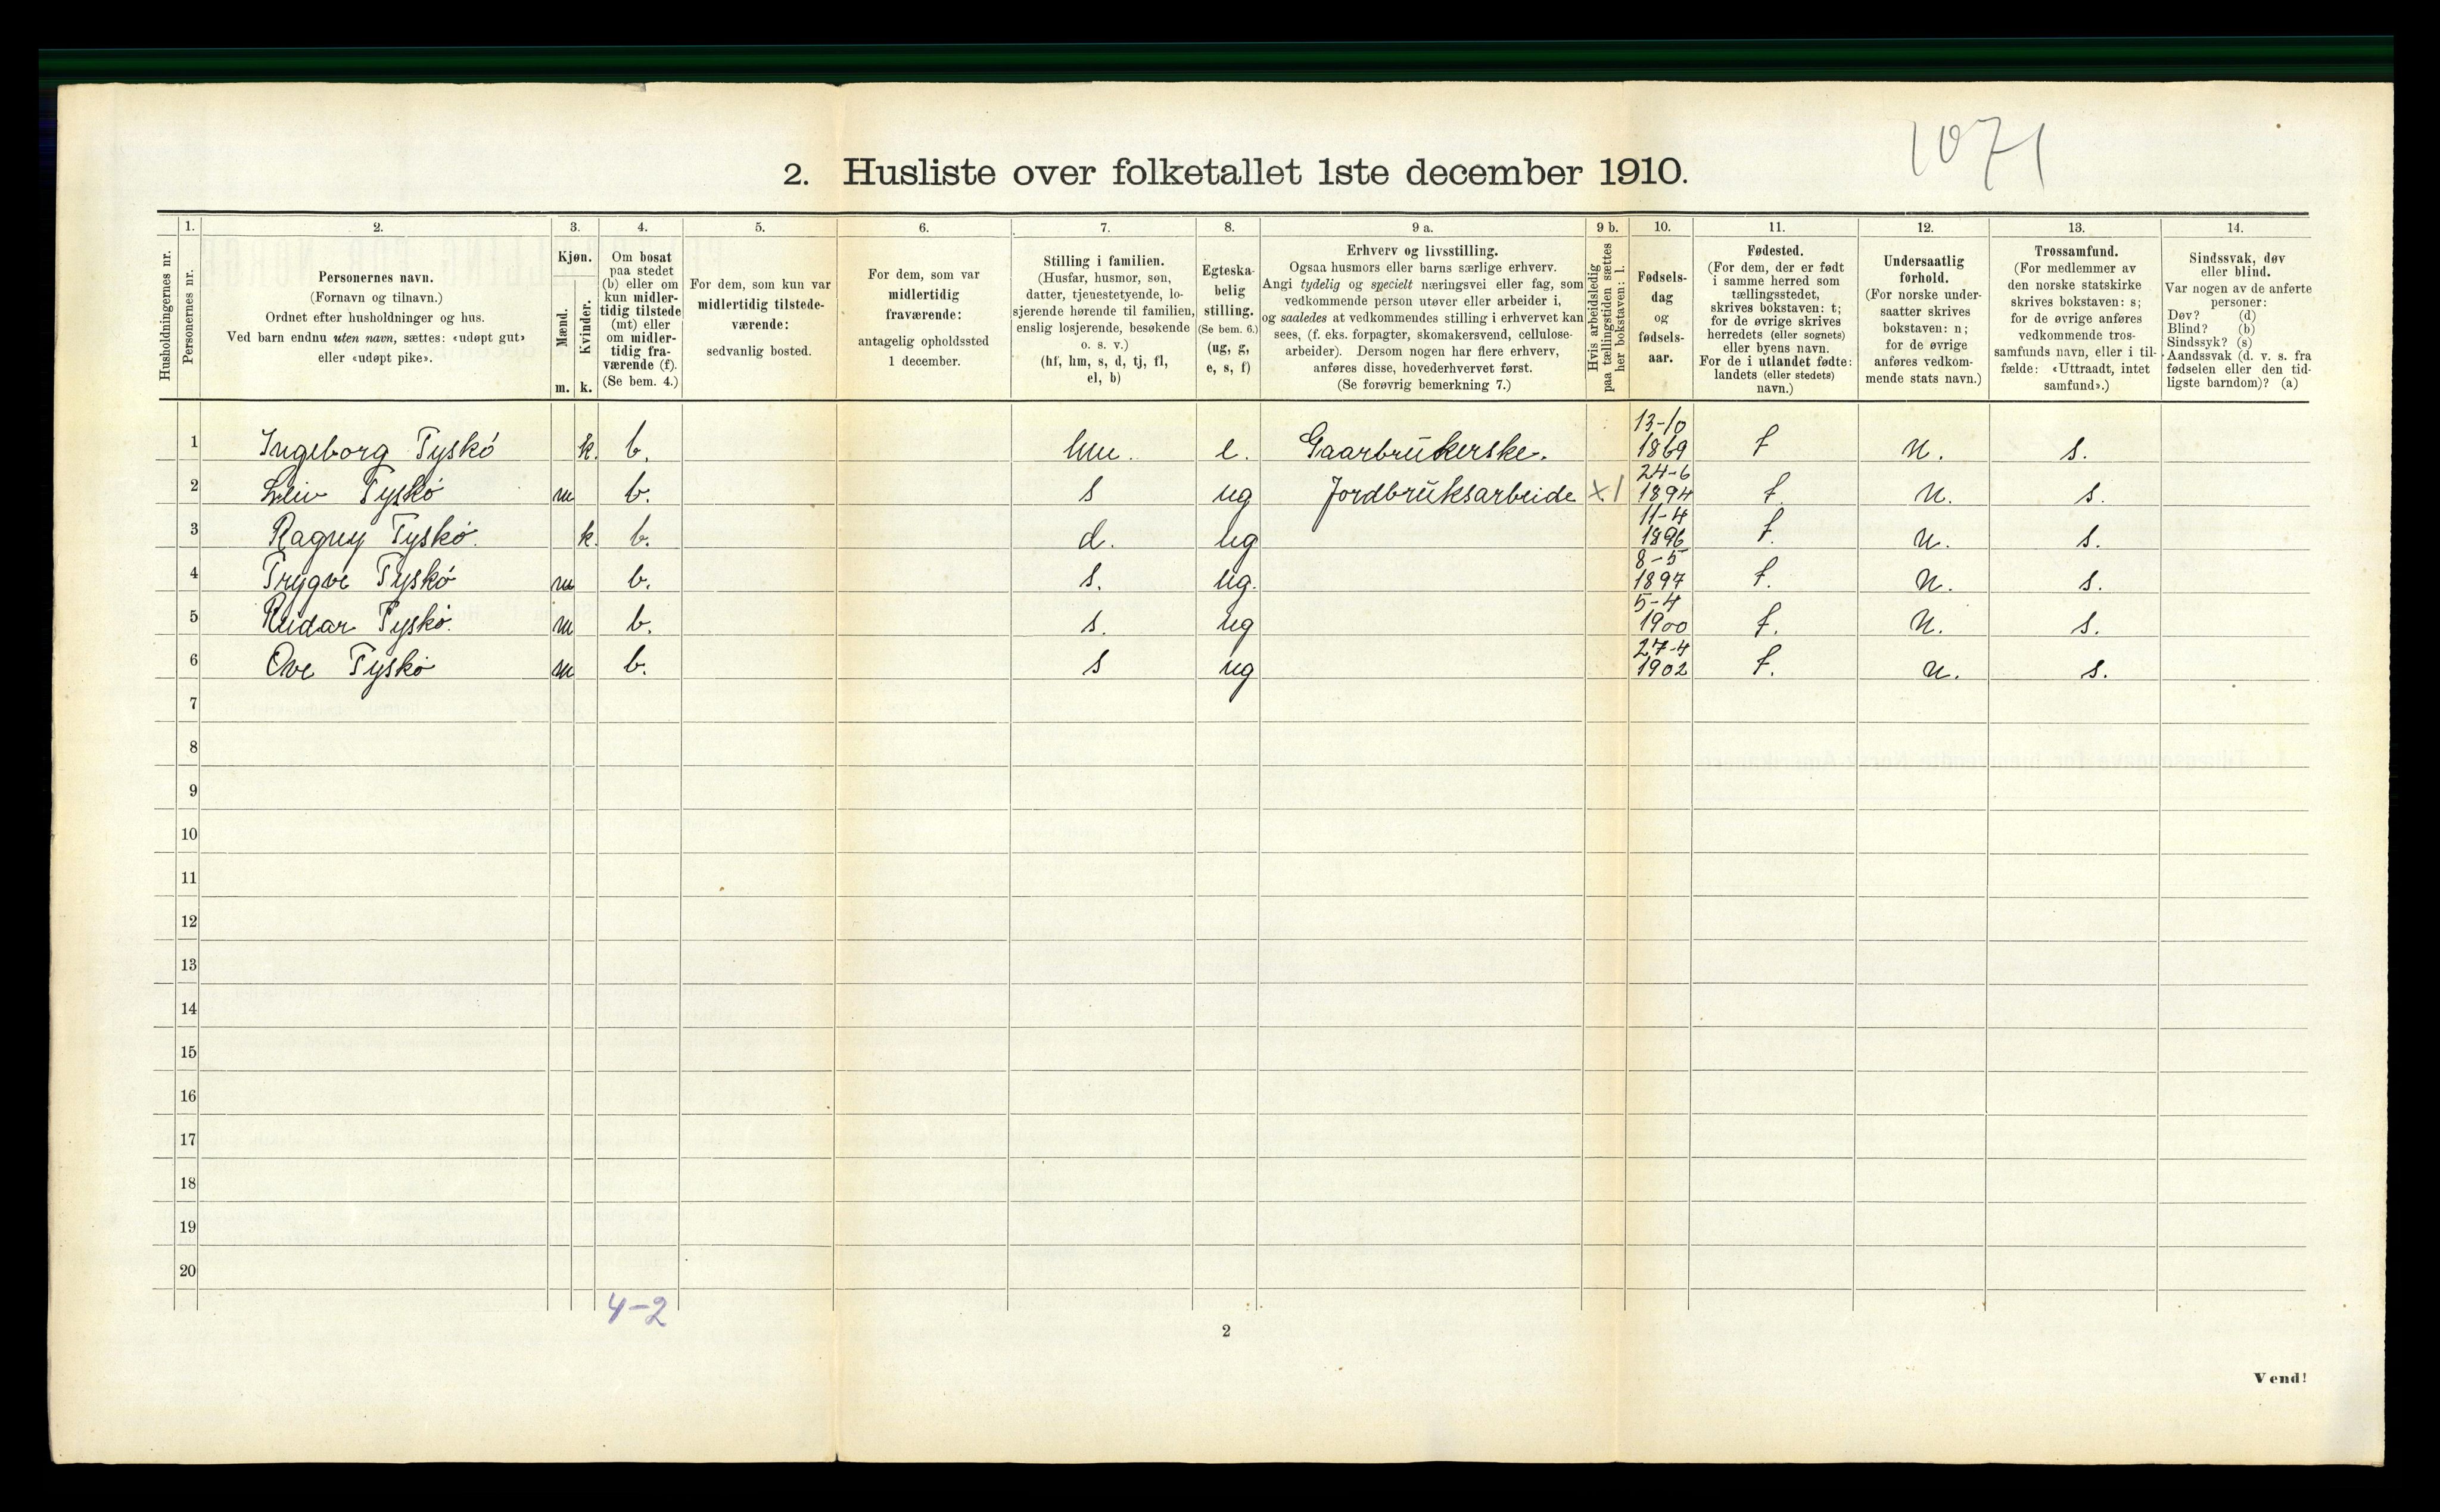 1071
2. Husliste over folketallet 1ste december 1910.
Husholdningernes nr.
1.
Personernes nr.
2.
Personernes navn.
(Fornavn og tilnavn.)
Ordnet efter husholdninger og hus.
Ved barn endnu uten navn, sættes: «udøpt gut»
eller «udøpt pike».
3.
Kjøn.
Mænd.
Kvinder.
m. k.
4.
Om bosat
paa stedet
(b) eller om
kun midler-
tidig tilstede
(mt) eller
om midler-
tidig fra-
værende (f).
(Se bem. 4.)
5.
For dem, som kun var
midlertidig tilstede-
værende:
sedvanlig bosted.
6.
For dem, som var
midlertidig
fraværende:
antagelig opholdssted
1 december.
7.
Stilling i familien.
(Husfar, husmor, søn,
datter, tjenestetyende, lo-
sjerende hørende til familien,
enslig losjerende, besøkende
o. s. v.)
(hf, hm, s, d, tj, fl,
el, b)
8.
Egteska-
belig
stilling.
(Se bem. 6.)
(ug, g,
e, s, f)
9 a.
Erhverv og livsstilling.
Ogsaa husmors eller barns særlige erhverv.
Angi tydelig og specielt næringsvei eller fag, som
vedkommende person utøver eller arbeider i,
og saaledes at vedkommendes stilling i erhvervet kan
sees, (f. eks. forpagter, skomakersvend, cellulose-
arbeider). Dersom nogen har flere erhverv,
anføres disse, hovederhvervet først.
(Se forøvrig bemerkning 7.)
9 b.
Hvis arbeidsledig
paa tællingstiden sættes
her bokstaven: l.
10.
Fødsels-
dag
og
fødsels-
aar.
11.
Fødested.
(For dem, der er født
i samme herred som
tællingsstedet,
skrives bokstaven: t;
for de øvrige skrives
herredets (eller sognets)
eller byens navn.
For de i utlandet fødte:
landets (eller stedets)
navn.)
12.
Undersaatlig
forhold.
(For norske under-
saatter skrives
bokstaven: n;
for de øvrige
anføres vedkom-
mende stats navn.)
13.
Trossamfund.
(For medlemmer av
den norske statskirke
skrives bokstaven: s;
for de øvrige anføres
vedkommende tros-
samfunds navn, eller i til-
fælde: «Uttraadt, intet
samfund».)
14.
Sindssvak, døv
eller blind.
Var nogen av de anførte
personer:
Døv? (d)
Blind? (b)
Sindssyk? (s)
Aandssvak (d. v. s. fra
fødselen eller den tid-
ligste barndom)? (a)
1 Ingeborg Tyskø k. b. hm. e. Gaarbrukerske. 13-10 1869 t n. s.
2 Leiv Tyskø m b. s ug Jordbruksarbeide x l 24-6 1894 t. n. s.
3 Ragny Tyskø. k. b. d. ug 11-4 1896 t. n. s.
4 Trygve Tyskø m b. s. ug. 8-5 1897 t. n. s.
5 Reidar Tyskø. m b. s. ug 5-4 1900 t. n. s.
6 Ove Tyskø m b. s ug 27-4 1902 t. n. s.
7
8
9
10
11
12
13
14
15
16
17
18
19
20
4-2
2
Vend!